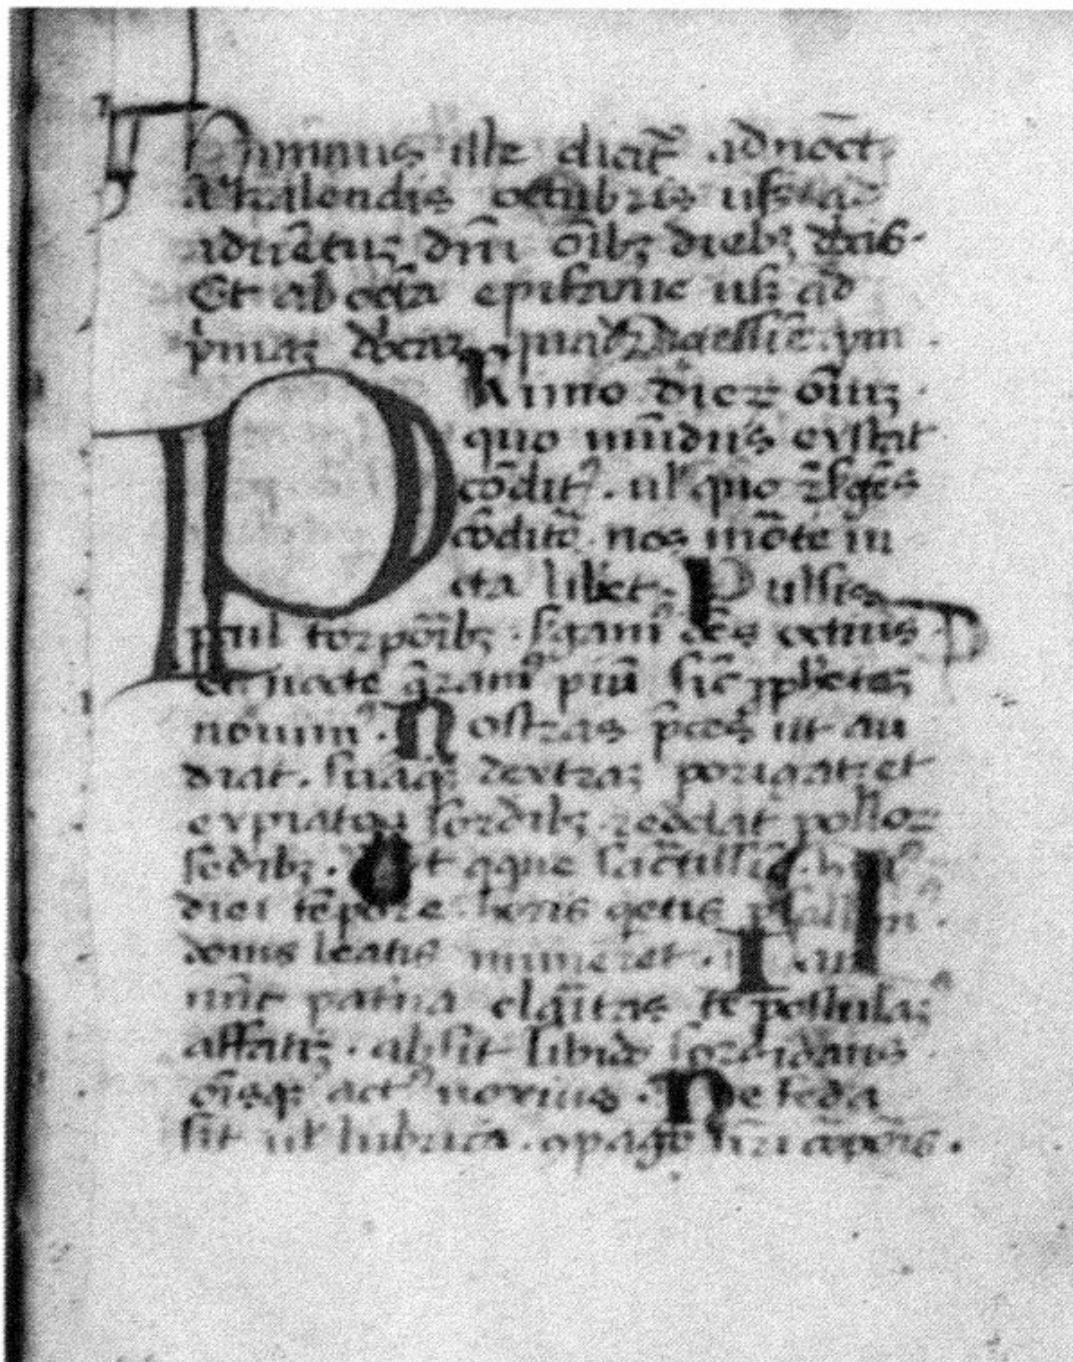 ymnus ille dicat̃ ad noct̃
a kalendis octubris usq; ad
aduẽtuȝ dñi oĩbȝ diebȝ dõicis.
Et ab octã epifanie usqȝ ad
p̾maȝ dõicaȝ quadragessiẽ. ymn
Primo dieȝ oĩuȝ.
quo mũdus exstat
cõditꝰ. ul̾ quo r̃sgẽs
cõditõr nos mõte ui
cta liƀet. Pulsis
pcul torpõribȝ. surgamꝰ oẽs octius.
et nocte q̃ramꝰ piũ sic̃ ꝓphetaȝ
nouimꝰ. Nostras p̃ces ut au
diat. suaqȝ dextraȝ porigat. et
expiatos sordibȝ. reddat pollor
sedibȝ. Ut qque sac̃tissiõ. huiꝰ
diei tẽpore. horis qetis psallimꝰ.
donis beatis muneret. Iam
nũc patña clãitas te postulaȝ
affatiȝ. absit libido sordidans
oĩsqȝ actꝰ noxius. Ne feda
sit ul̾ lubrica. ꝯpago nr̃i corp̃ois.